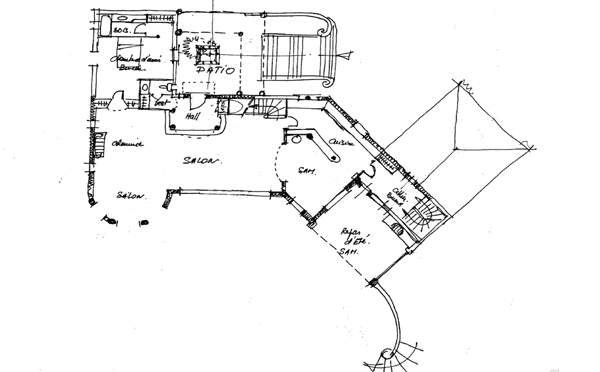 S.D.B.
Chambre d'ami
Bureau
PATIO
Vest.
Hall
Cheminée
SALON.
SALON.
Cuisine
SAM.
Cellier
Repas
d'été.
SAM.